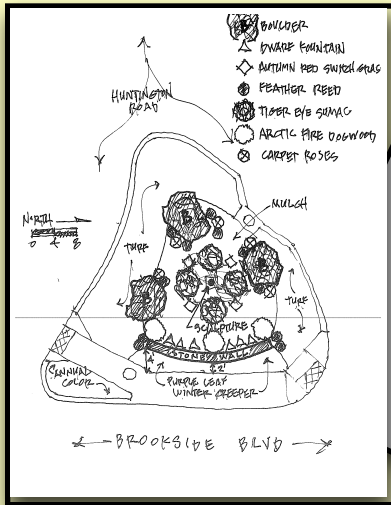 BOULDER
DWARF FOUNTAIN
AUTUMN RED SWITCH GRAS
FEATHER REED
TIGER EYE SUMAC
ARCTIC FIRE DOGWOOD
CARPET ROSES
HUNTINGTON
ROAD
MULCH
NORTH
0 4 8
TURF
B
B
B
TURF
SCULPTURE
STONE WALL
4'
22'
ANNUAL
COLOR
PURPLE LEAF
WINTER CREEPER
BROOKSIDE BLVD